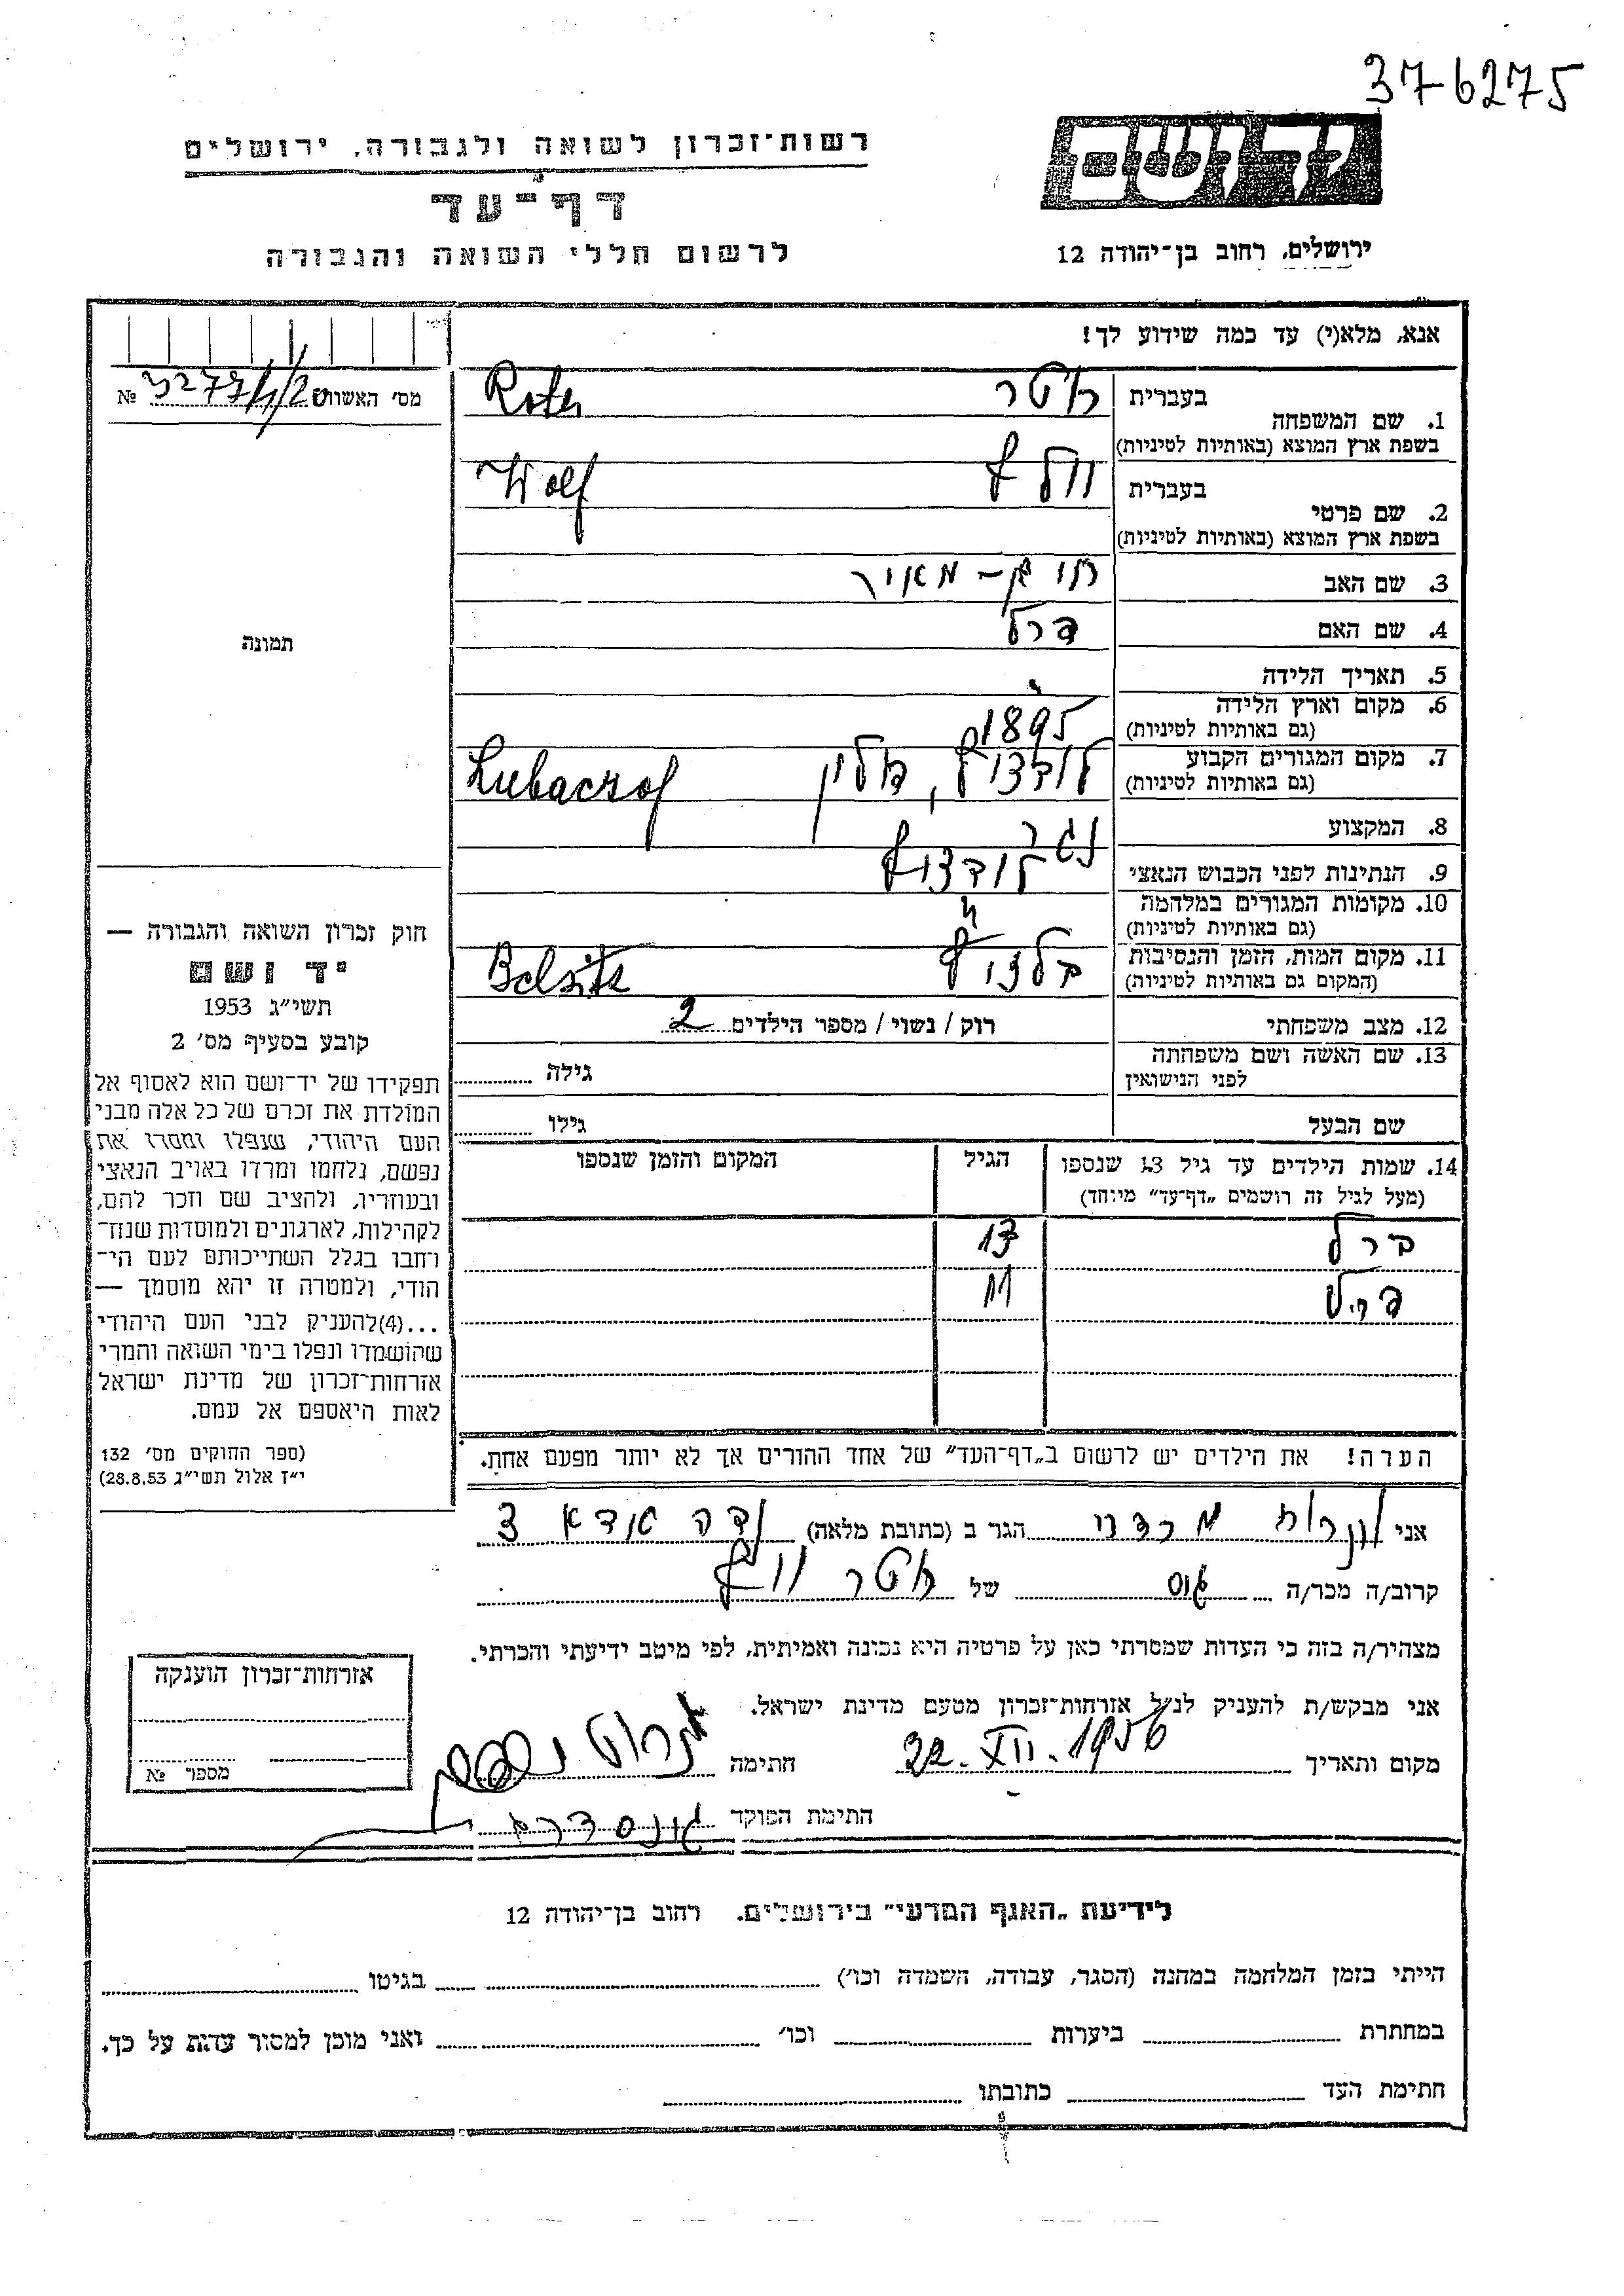 376275
יד ושם
רשות־זכרון לשואה ולגבורה, ירושלים
דף־עד
לרשום חללי השואה והגבורה
ירושלים, רחוב בן־יהודה 12
אנא, מלא(י) עד כמה שידוע לך!
מס׳ האשווי №
1. שם המשפחה
בעברית
Roter
בשפת ארץ המוצא (באותיות לטיניות)
2. שם פרטי
בעברית
וולף
Wolf
בשפת ארץ המוצא (באותיות לטיניות)
3. שם האב
4. שם האם
5. תאריך הלידה
6. מקום וארץ הלידה
(גם באותיות לטיניות)
1895
7. מקום המגורים הקבוע
(גם באותיות לטיניות)
Lubaczof
8. המקצוע
נגר
9. הנתינות לפני הכבוש הנאצי
10. מקומות המגורים במלחמה
(גם באותיות לטיניות)
11. מקום המות, הזמן והנסיבות
(המקום גם באותיות לטיניות)
Belsitz
12. מצב משפחתי
רוק / נשוי / מספר הילדים 2
13. שם האשה ושם משפחתה
לפני הנישואין
גילה
שם הבעל
גילו
14. שמות הילדים עד גיל 13 שנספו
(מעל לגיל זה רושמים „דף־עד״ מיוחד)
הגיל
המקום והזמן שנספו
ברל
13
11
הערה! את הילדים יש לרשום ב„דף־העד״ של אחד ההורים אך לא יותר מפעם אחת.
תמונה
חוק זכרון השואה והגבורה —
יד ושם
תשי״ג 1953
קובע בסעיף מס׳ 2
תפקידו של יד־ושם הוא לאסוף אל
המולדת את זכרם של כל אלה מבני
העם היהודי, שנפלו ומסרו את
נפשם, נלחמו ומרדו באויב הנאצי
ובעוזריו, ולהציב שם וזכר להם,
לקהילות, לארגונים ולמוסדות שנח־
רחבו בגלל השתייכותם לעם הי־
הודי, ולמטרה זו יהא מוסמך —
...(4)להעניק לבני העם היהודי
שהושמדו ונפלו בימי השואה והמרי
אזרחות־זכרון של מדינת ישראל
לאות היאספם אל עמם.
(ספר החוקים מס׳ 132
י״ז אלול תשי״ג 28.8.53)
אני
הגר ב (כתובת מלאה)
קרוב/ה מכר/ה
של
מצהיר/ה בזה כי העדות שמסרתי כאן על פרטיה היא נכונה ואמיתית, לפי מיטב ידיעתי והכרתי.
אני מבקש/ת להעניק לנ״ל אזרחות־זכרון מטעם מדינת ישראל.
מקום ותאריך 22.XII.1956
חתימה
חתימת הפוקד
אזרחות־זכרון הוענקה
מספר №
לידיעת „האגף המדעי״ בירושלים, רחוב בן־יהודה 12
הייתי בזמן המלחמה במחנה (הסגר, עבודה, השמדה וכו׳) בגיטו
במחתרת ביערות וכו׳ ואני מוכן למסור עדות על כך.
חתימת העד כתובתו